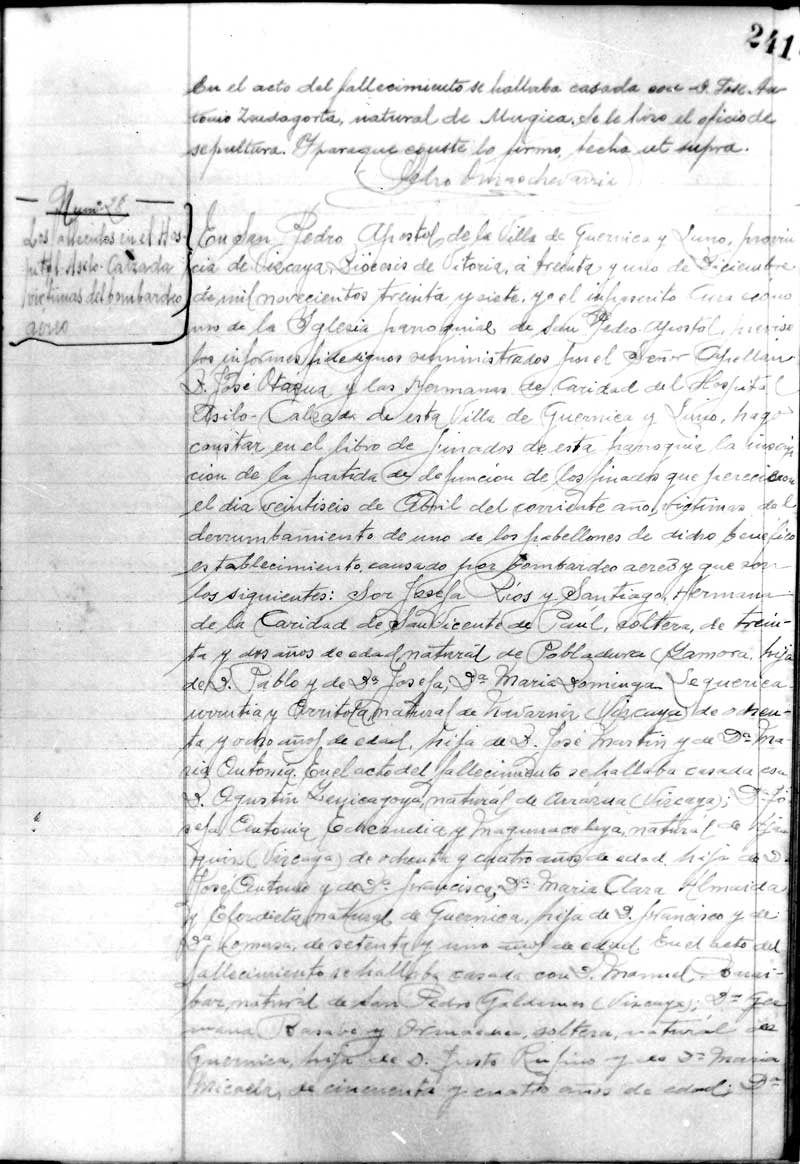 241
En el acto del fallecimiento se hallaba casada con D. José An-
tonio Zuedagorta, natural de Mugica. Se le hizo el oficio de
sepultura. Y para que conste lo firmo, fecha ut supra.
Pedro
Num.
Los fallecidos en el Hos-
pital Asilo-Calzada
víctimas del bombardeo
aéreo
En San Pedro Apostol de la Villa de Guernica y Luno, provin-
cia de Vizcaya, Diócesis de Vitoria, á treinta y uno de Diciembre
de mil novecientos treinta y siete, yo el infrascrito Cura ecóno-
mo de la Iglesia parroquial de San Pedro Apostol, previos
los informes fidedignos suministrados por el Señor Capellán
D. José Otazua y las Hermanas de Caridad del Hospital
Asilo-Calzada de esta Villa de Guernica y Luno, hago
constar en el libro de finados de esta parroquia la inscrip-
ción de la partida de defunción de los finados que perecieron
el día veintiseis de Abril del corriente año, víctimas del
derrumbamiento de uno de los pabellones de dicho benéfico
establecimiento, causado por bombardeo aereo y que son
los siguientes: Sor Josefa Ríos y Santiago, Hermana
de la Caridad de San Vicente de Paúl, soltera, de trein-
ta y dos años de edad natural de Pobladura (Zamora, hija
de D. Pablo y de Dª Josefa; Dª Maria Dominga
y natural de (Vizcaya) de ochen-
ta y ocho años de edad, hija de D. José Martín y de Dª Ma-
ria Antonia. En el acto del fallecimiento se hallaba casada con
D. Agustín natural de Arrázua (Vizcaya); Dª Jo-
sefa Antonia Echeandia y natural de
(Vizcaya) de ochenta y cuatro años de edad, hija de D.
José Antonio y de Dª Francisca; Dª Maria Clara Almaida
y Elordieta natural de Guernica, hija de D. Francisco y de
Dª Tomasa, de setenta y uno años de edad. En el acto del
fallecimiento se hallaba casada con D. Manuel
natural de San Pedro Galdames (Vizcaya); Dª Ger-
mana Basabe y Ormaechea, soltera, natural de
Guernica, hija de D. Justo Rufino y de Dª Maria
Micaela, de cincuenta y cuatro años de edad; Dª